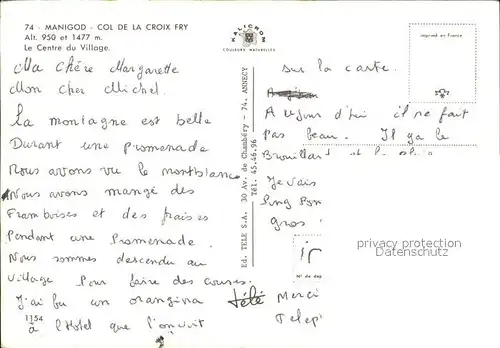 74 - MANIGOD - COL DE LA CROIX FRY
Alt. 950 et 1477 m.
Le Centre du Village.
KALICROM
COULEURS NATURELLES
Imprimé en France
Ed. TELE S.A. 30 Av. de Chambéry - 74. ANNECY
Tél. 45.46.96
Ma Chère Margarette
Mon cher Michel.
La montagne est belle
Durant une promenade
Nous avons vu le montblanc
Nous avons mangé des
Framboises et des fraises
Pendant une Promenade.
Nous sommes descendu au
village Pour faire des courses.
J'ai bu un orangina
1154
à l'Hotel que l'on voit
sur la carte.
Aujour d'hui il ne fait
pas beau. Il y a le
Brouillard et la Pluie
Je vais
Ping Pon
gros
N° de dép
Merci
Télé
Telep
privacy protection
copyright-protected